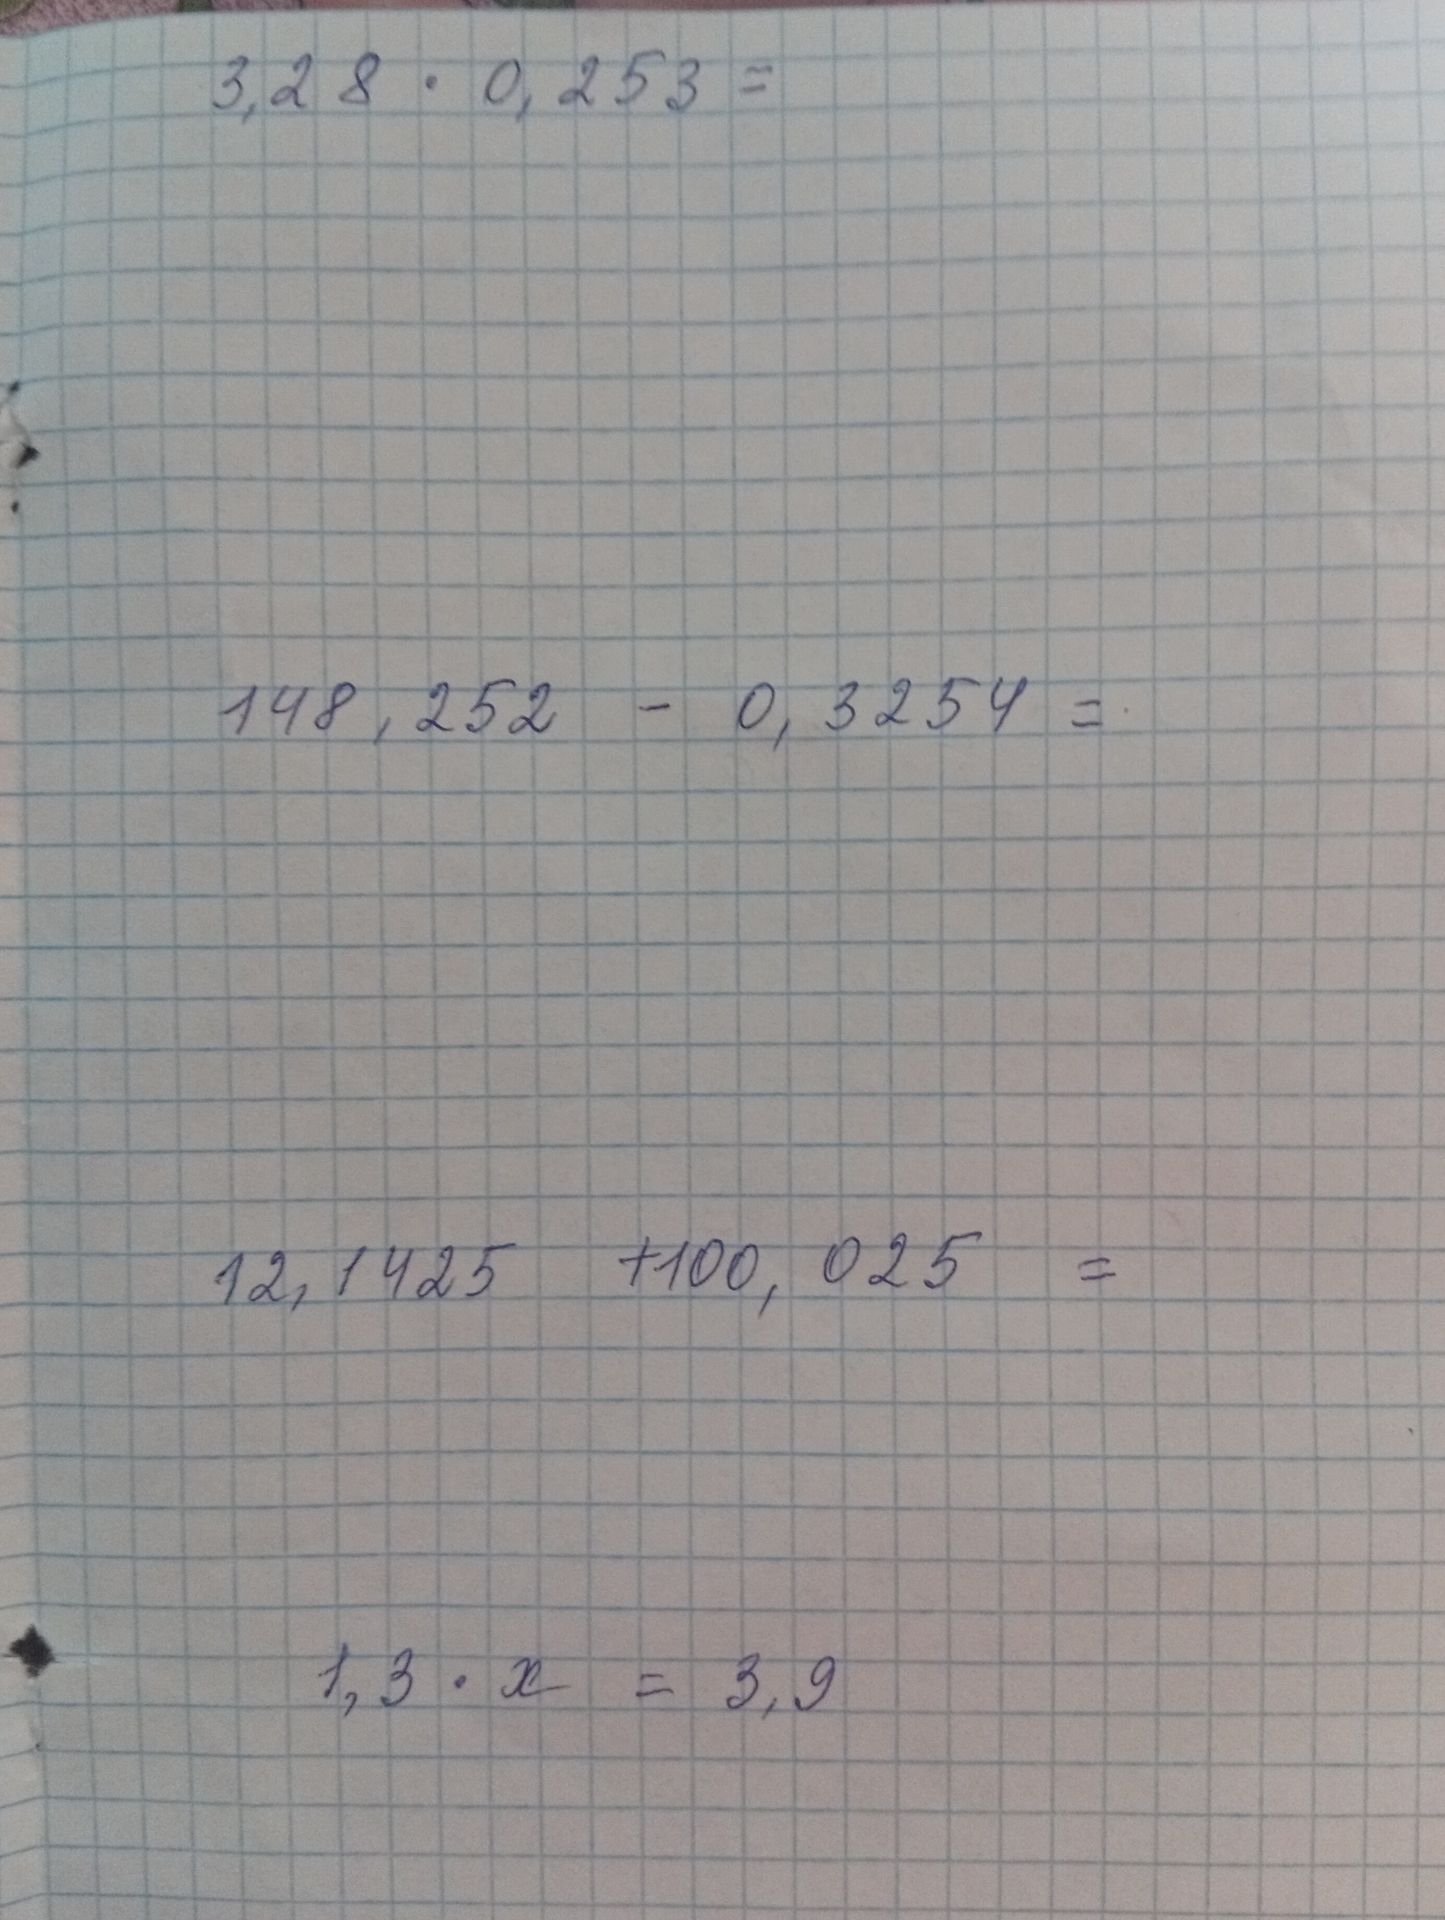 3,28 · 0,253 =
148,252 - 0,3254 =
12,1425 +100,025 =
1,3 · x = 3,9